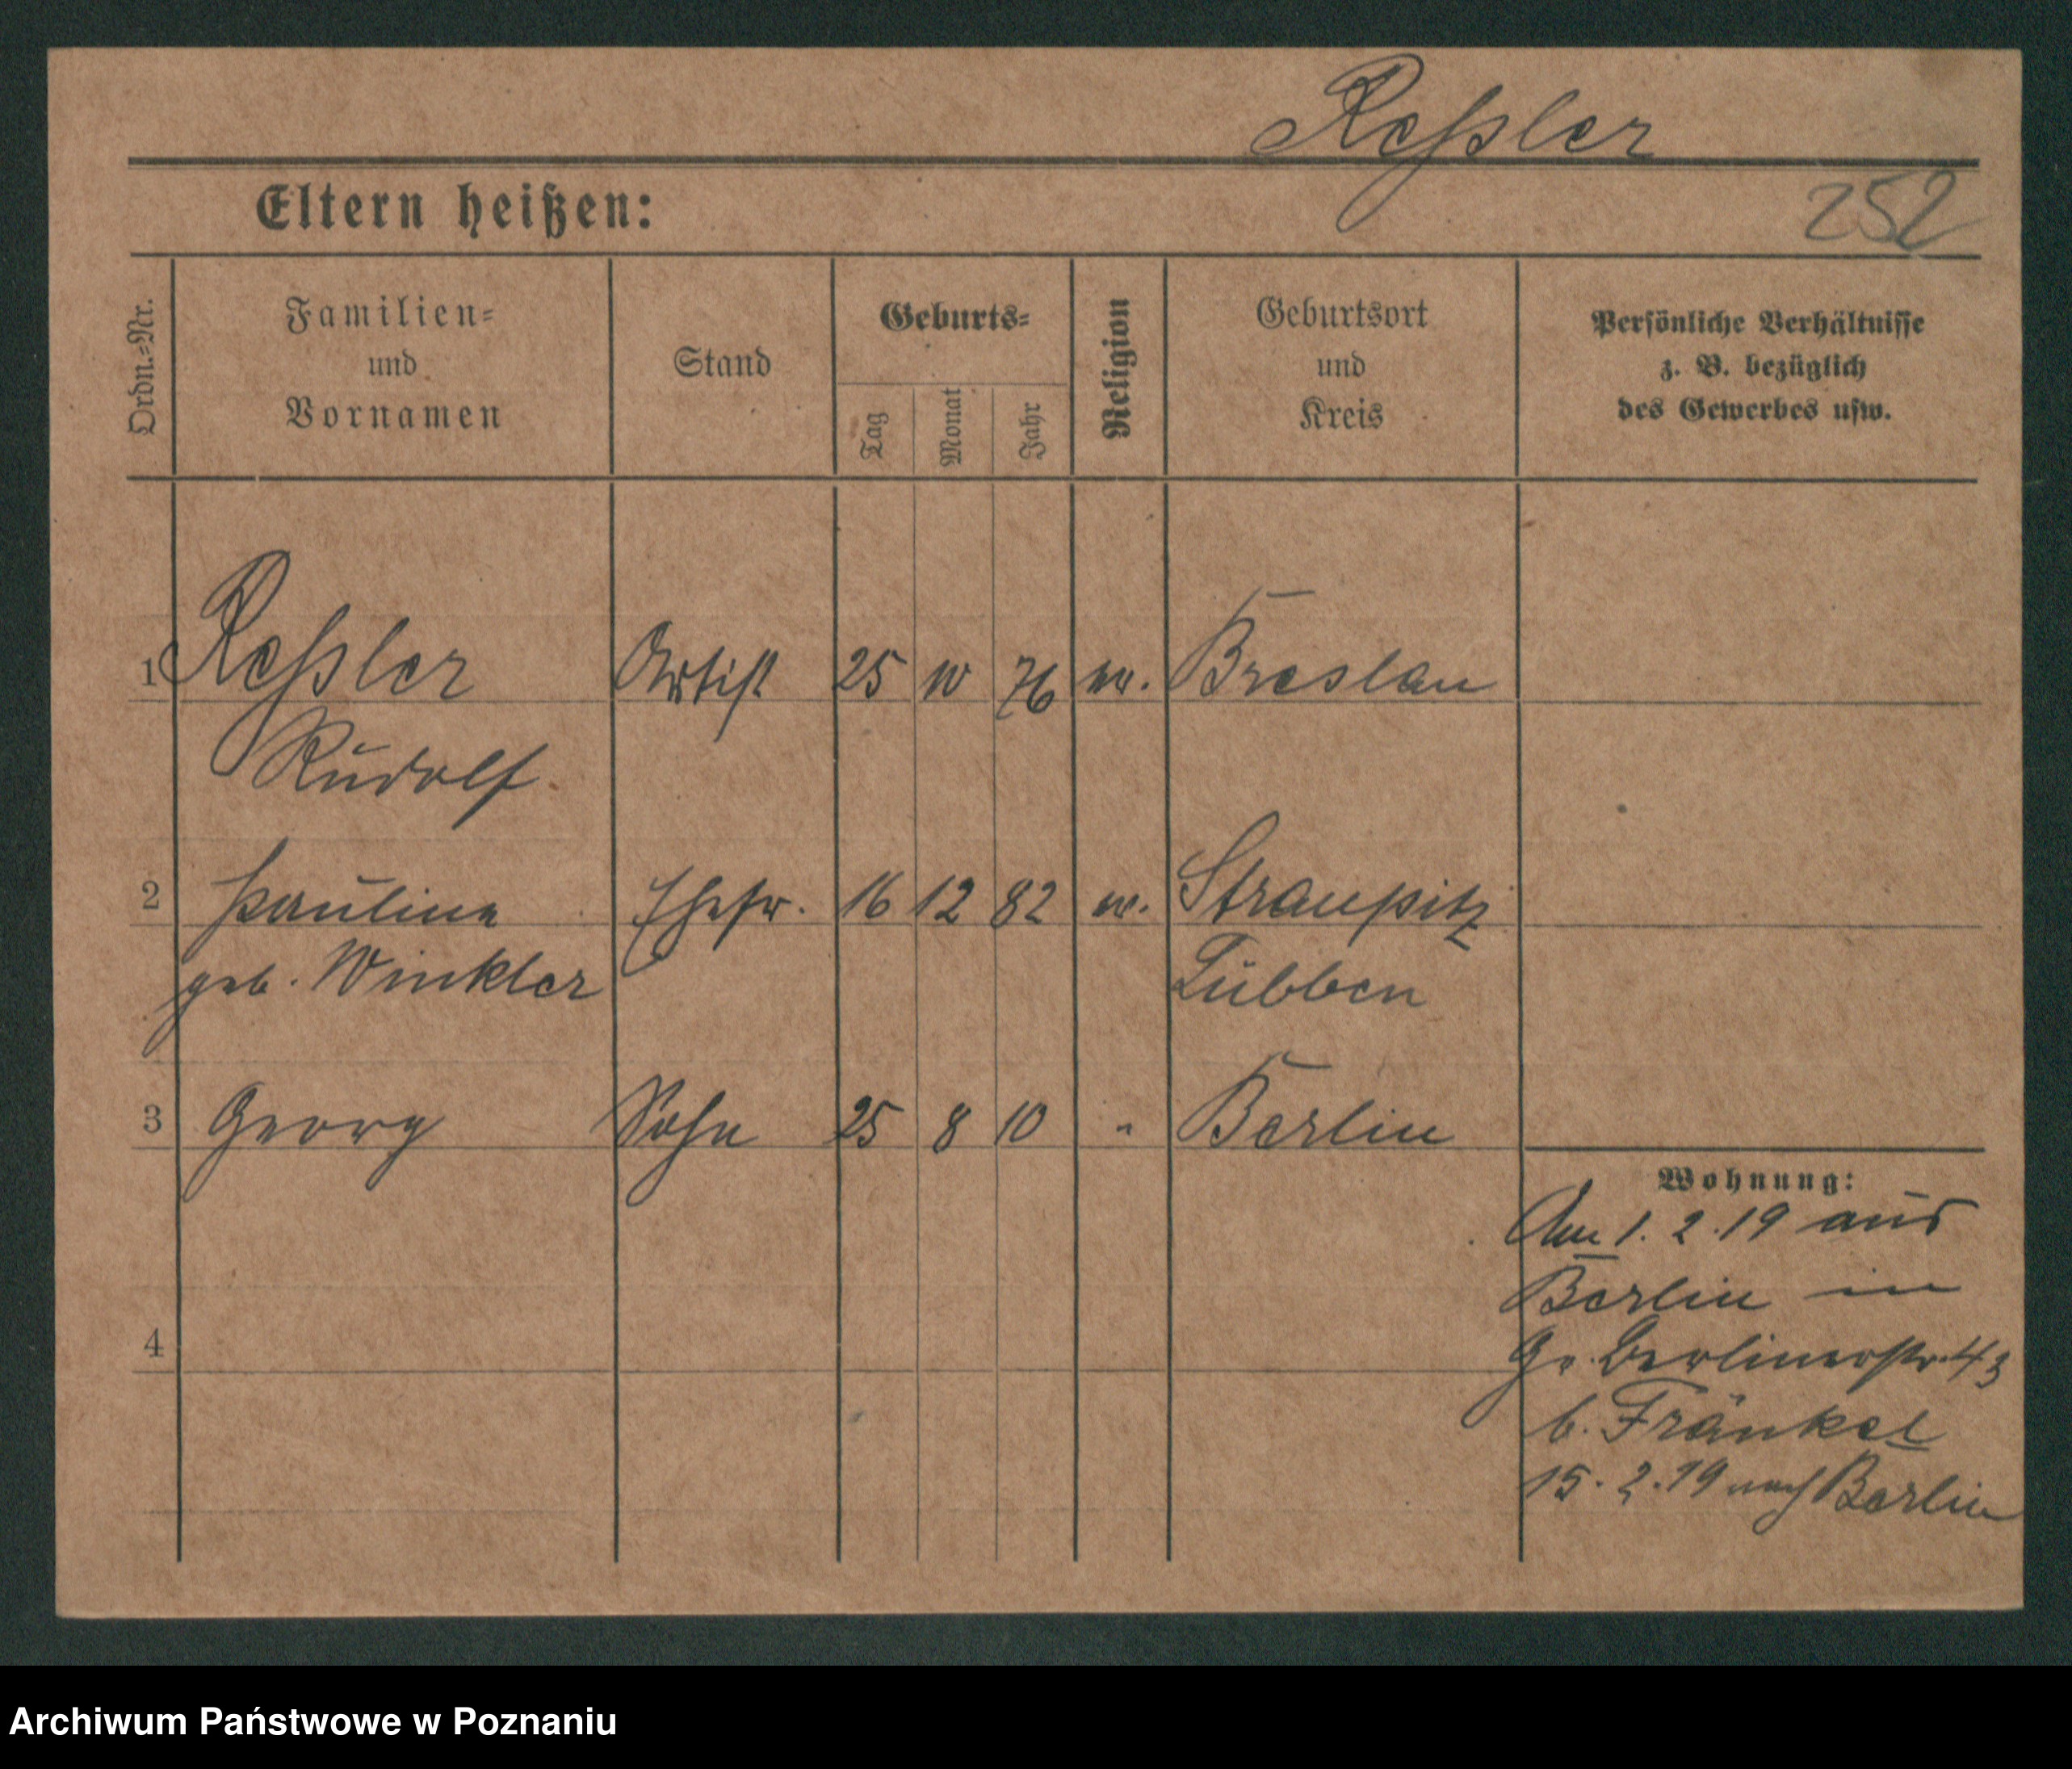 Reßler
Eltern heißen:
252
Ordn.=Nr.
Familien=
und
Vornamen
Stand
Geburts=
Tag
Monat
Jahr
Religion
Geburtsort
und
Kreis
Persönliche Verhältnisse
z. B. bezüglich
des Gewerbes usw.
1 Reßler Artist 25 10 76 ev. Breslau
Rudolf
2 Pauline Ehefr. 16 12 82 ev. Straupitz
geb. Winkler Lübben
3 Georg Sohn 25 8 10 " Berlin
Wohnung:
Am 1. 2. 19 aus
Berlin in
4
Gr. Berlinerstr. 43
b. Fränkel
15. 2. 19 nach Berlin
Archiwum Państwowe w Poznaniu